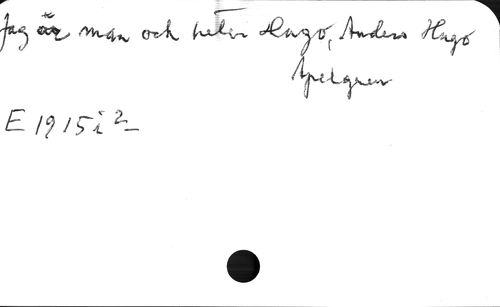 Jag är man och heter Hugo, Anders Hugo
Apelgren
E 1915 i 2